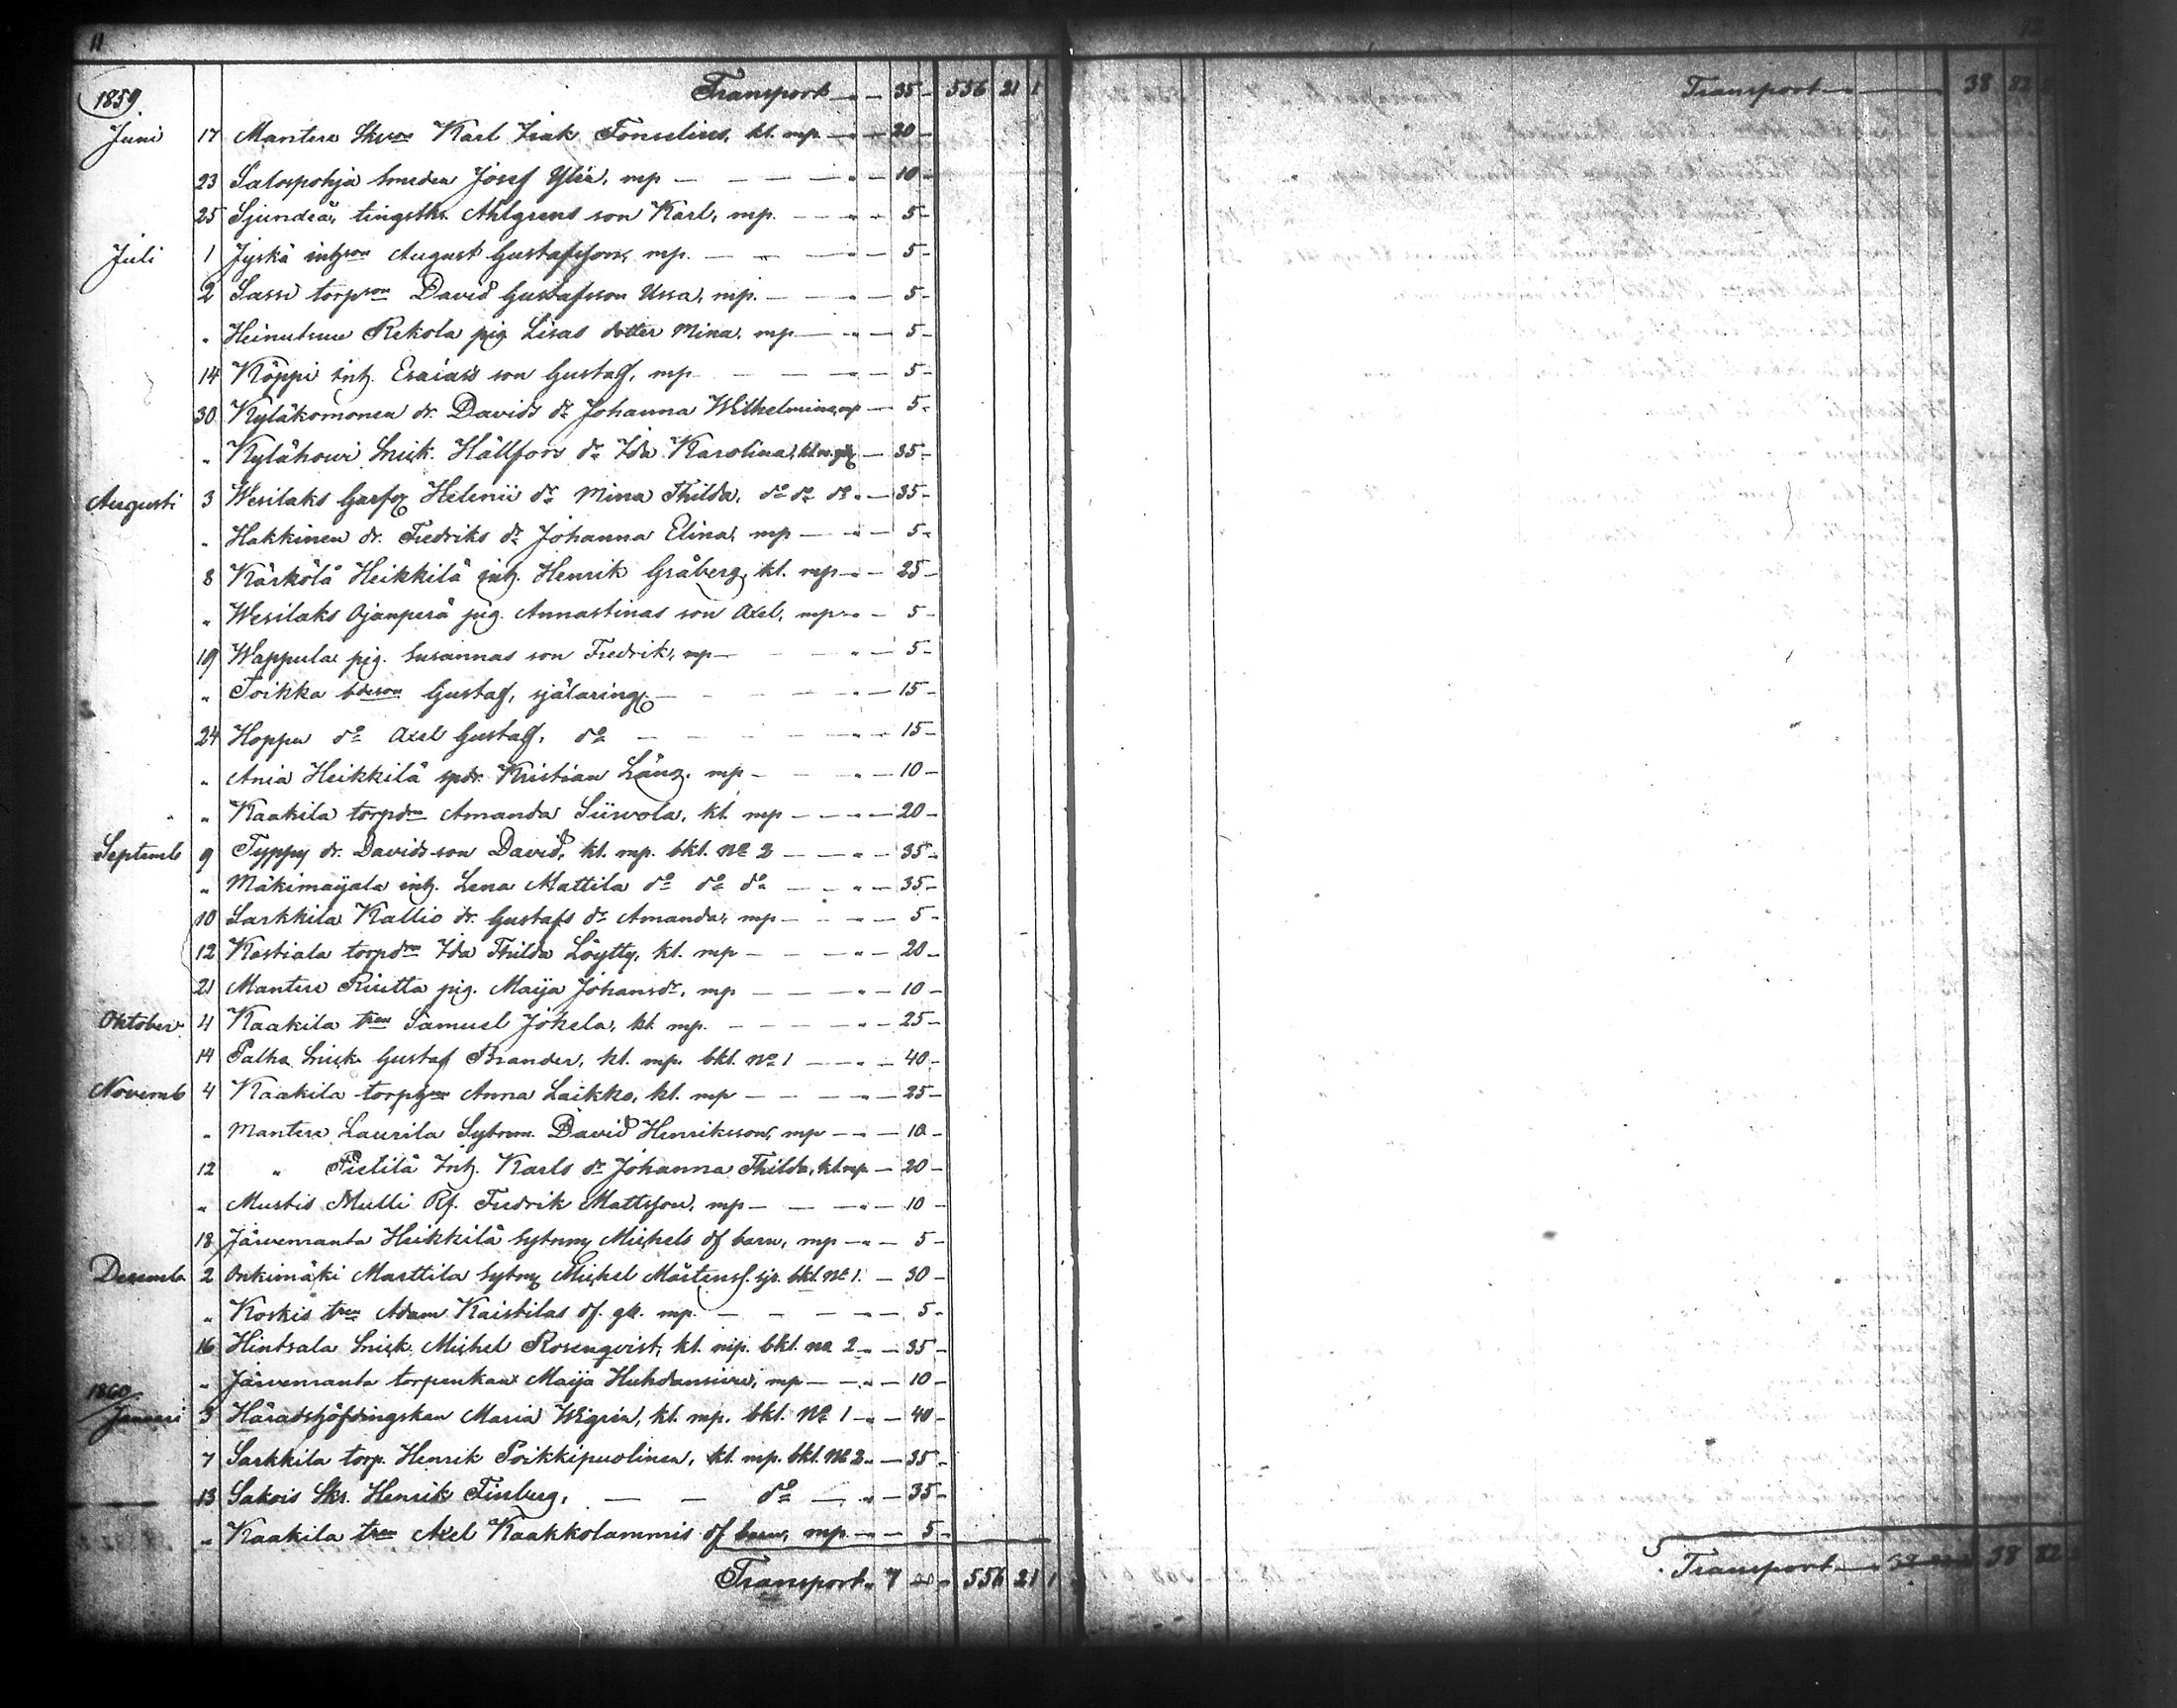 11
12
1859 Transport „ – 35 – 556 21 1
Juni 17 Mantere Karl Isak Fonselius, kl. mp – – 20 –
23 Salospohja Smeden Josef Ylin, mp – – – – „ – 10 –
25 Sjundeå, Ahlgrens son Karl, mp. – – „ – 5 –
Juli 1 Jyskä inhson August Gustafsson, mp. – – – 5 –
2 Sassi torpson David Gustafsson Ussa, mp. – „ – 5 –
„ Rekola pig Lisas dotter Mina, mp – „ – 5 –
14 Köppi inh. Esaias son Gustaf, mp – – „ – 5 –
30 Kyläkomonen dr. Davids dr Johanna Wilhelmina, mp – 5 –
„ Kylähowi Snick. Hällfors dr Ida Karolina, kl. – 35 –
Augusti 3 Wesilaks Helenii dr Mina Thilda, do do do „ – 35 –
„ Hakkinen dr. Fredriks dr Johanna Elina, mp – „ – 5 –
8 Kärkölä Heikkilä inh. Henrik Gråberg, kl. mp „ – 25 –
„ Wesilaks Ojanperä pig. Annastinas son Axel, mp „ – 5 –
19 Wappula pig. Susannas son Fredrik, mp – – „ – 5 –
„ Toikka bdeson Gustaf, själaring. – – – „ – 15 –
24 Hoppu do Axel Gustaf, do – – – – „ – 15 –
„ Ania Heikkilä spdr. Kristian Läng, mp – – „ – 10 –
„ Kaakila torpdrn Amanda Siirola, kl. mp – – „ – 20 –
Septemb 9 Typpy dr. Davids son David, kl. mp. bkl. No 2 – – „ – 35 –
„ Mäkimaijala inh. Lena Mattila do do do – „ – 35 –
10 Sarkkila Kallio dr. Gustafs dr Amanda, mp – – „ – 5 –
12 Kastiala torpdrn Ida Thilda Löytty, kl. mp – – – „ – 20 –
21 Mantere Riutta pig. Maija Johansdr, mp – – – „ – 10 –
Oktober 4 Kaakila tren Samuel Jokela, kl. mp. – – – „ – 25 –
14 Palha Snick Gustaf Brander, kl. mp. bkl. No 1 – – „ – 40 –
Novemb 4 Kaakila Anna Laikko, kl. mp – – – „ – 25 –
„ Mantere Laurila Sytnm. David Henriksson, mp – „ – 10 –
12 „ Pietilä Inh. Karls dr Johanna Thilda, kl. mp – 20 –
„ Mustis Mulli Rf. Fredrik Mattsson, mp – – – „ – 10 –
18 Järvenranta Heikkilä Sytnm Michels df barn, mp – „ – 5 –
Decemb 2 Onkimäki Marttila Sytnm Michel Mårtenss. sjr. bkl. No 1. – 30 –
„ Koskis tren Adam Kaistilas df. gb. mp. – – – „ – 5 –
16 Hintsala Snick Michel Rosenqvist, kl. mp. bkl. no 2 „ – 35 –
„ Järvenranta torpenkan Maija Huhdansuu, mp – „ – 10 –
1860
Januari 3 Häradshöfdingskan Maria Wigren, kl. mp. bkl. No 1 – „ – 40 –
7 Sarkkila torp. Henrik Poikkipuolinen, kl. mp. bkl. No 2 „ – 35 –
13 Sakois Skr. Henrik Finberg, – – do – „ – 35 –
„ Kaakila tren Axel Kaakkolammis df barn, mp – „ – 5 –
Transport „ 7 – 556 21 1
Transport – 38 82
Transport – 38 82